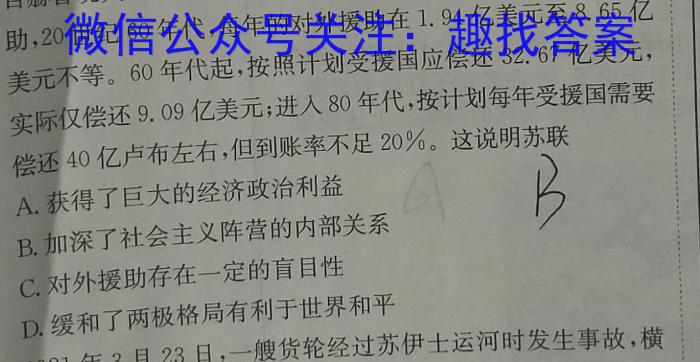 助,20世纪60年代,每年的对外援助在1.94亿美元至8.65亿
微信公众号关注：趣找答案
美元不等。60年代起,按照计划受援国应偿还32.67亿美元,
实际仅偿还9.09亿美元;进入80年代,按计划每年受援国需要
偿还40亿卢布左右,但到账率不足20%。这说明苏联
A.获得了巨大的经济政治利益
B.加深了社会主义阵营的内部关系
C.对外援助存在一定的盲目性
D.缓和了两极格局有利于世界和平
A
B
年3月23日,一艘货轮经过苏伊士运河时发生事故,横